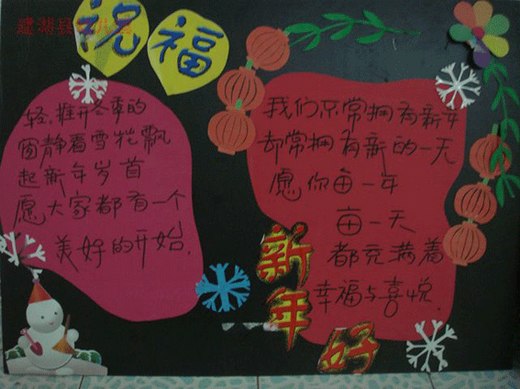 祝福
轻轻推开冬季的
窗静看雪花飘
起新年岁首
愿大家都有一个
美好的开始.
我们只常拥有新年
却常拥有新的一天
愿你每一年
每一天
都充满着
幸福与喜悦.
新年好